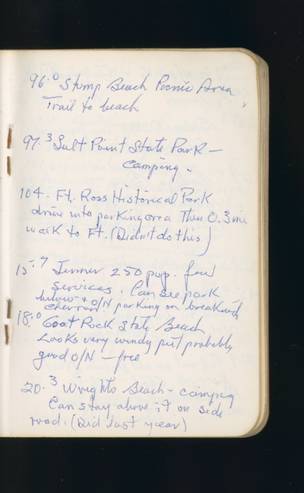 96.0 Stump Beach Picnic Area
Trail to beach
97.3 Salt Point State Park –
Camping.
104. Ft. Ross Historical Park
drive into parking area Then 0.3 mi
walk to Ft. (Didn't do this)
15.7 Jenner 250 pop. few
services. Can see park
below + O/N parking on
18.0 Goat Rock State Beach
Looks very windy but probably
good O/N – free
20.3 Wrights Beach – camping
Can stay above it on side
road. (Did last year)